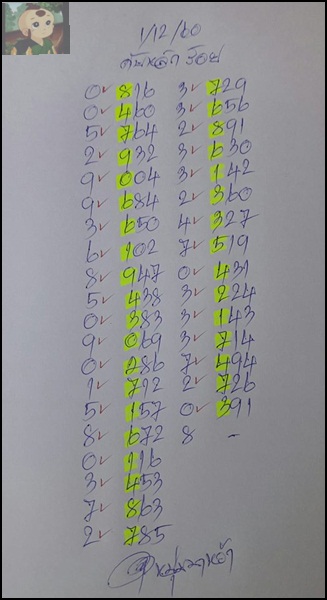 1/12/60
ดับหลักร้อย
0✓ 816 3✓ 729
0✓ 460 3✓ 656
5✓ 764 2✓ 891
2✓ 932 3✓ 630
9✓ 004 3✓ 142
9✓ 684 2✓ 360
3✓ 650 4✓ 327
6✓ 102 7✓ 519
8✓ 947 0✓ 431
5✓ 438 3✓ 224
0✓ 383 3✓ 143
9✓ 069 3✓ 714
0✓ 286 7✓ 494
1✓ 792 2✓ 726
5✓ 157 0✓ 391
8✓ 672 8 -
0✓ 116
3✓ 453
7✓ 863
2✓ 785